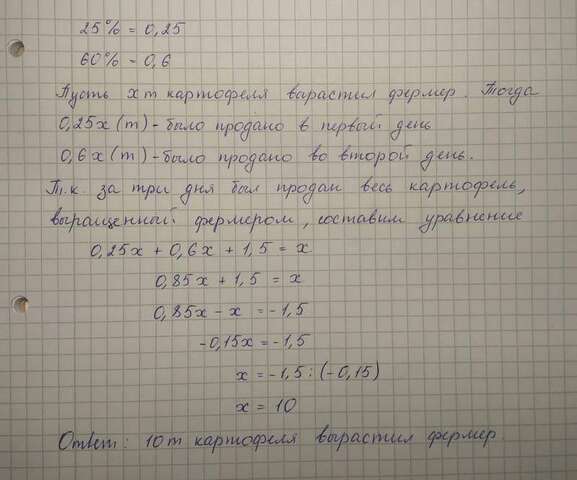 25% = 0,25
60% - 0,6
Пусть x т картофеля вырастил фермер. Тогда
0,25x (т) - было продано в первый день
0,6x (т) - было продано во второй день.
Т.к. за три дня был продан весь картофель,
выращенный фермером, составим уравнение
0,25x + 0,6x + 1,5 = x
0,85x + 1,5 = x
0,85x - x = -1,5
-0,15x = -1,5
x = -1,5 : (-0,15)
x = 10
Ответ: 10 т картофеля вырастил фермер